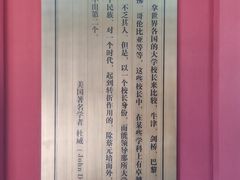 拿世界各国的大学校长来比较，牛津、剑桥、巴黎、
佛、哥伦比亚等等，这些校长中，在某些学科上有卓
不乏其人，但是，以一个校长身份，而能领导那所大学
民族、对一个时代，起到转折作用的，除蔡元培而外，
出第二个。
美国著名学者 杜威（John D